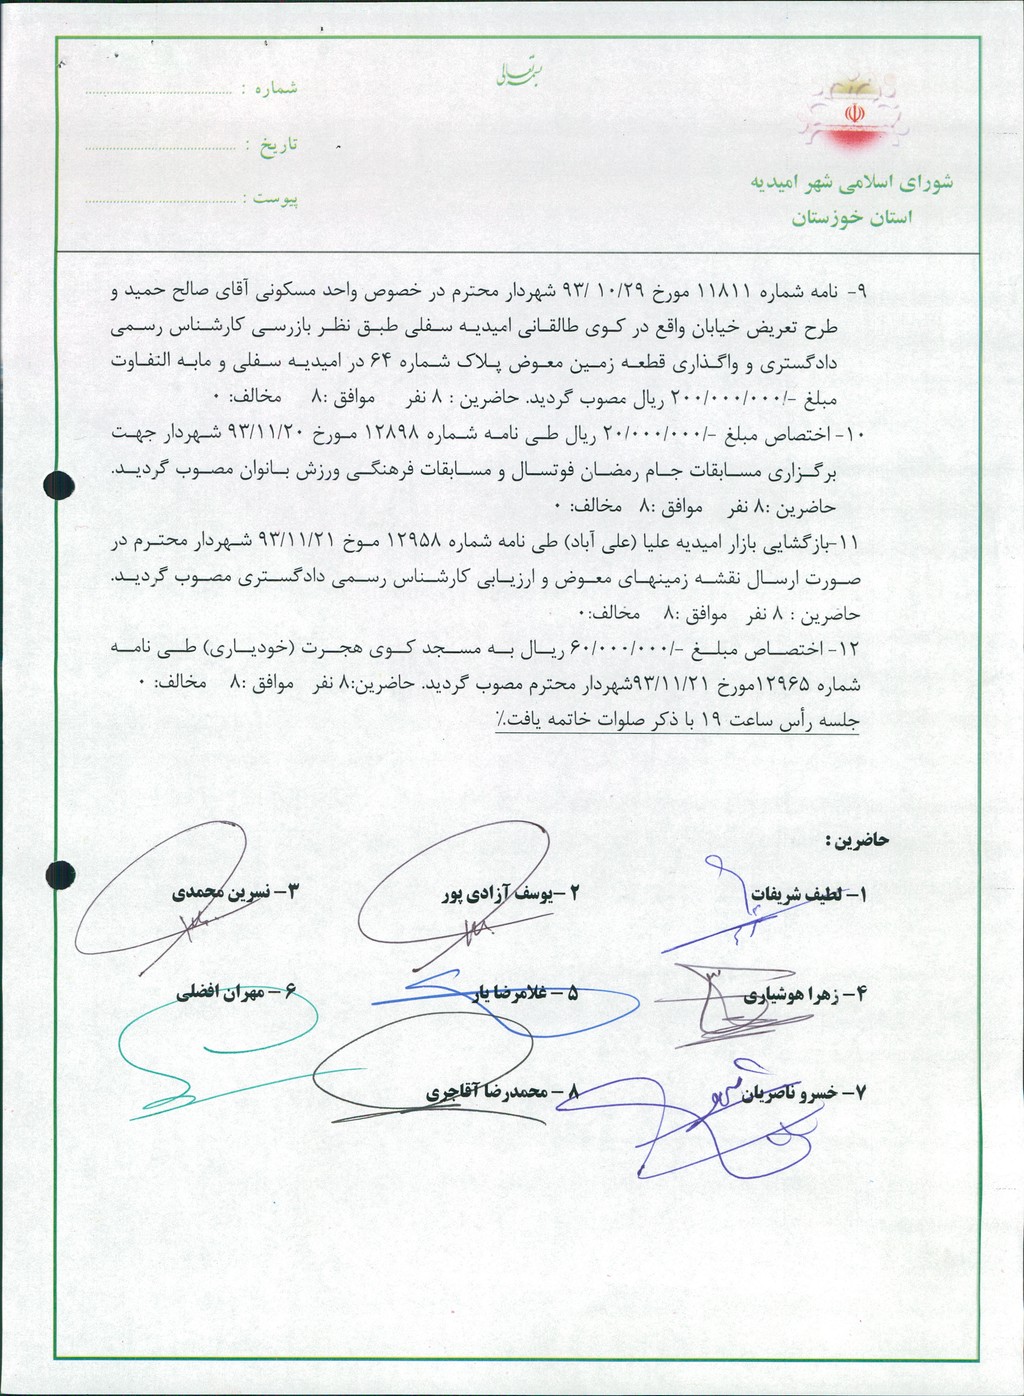 بسمه تعالی
شورای اسلامی شهر امیدیه
استان خوزستان
شماره :
تاریخ :
پیوست :
۹- نامه شماره ۱۱۸۱۱ مورخ ۹۳/ ۱۰/۲۹ شهردار محترم در خصوص واحد مسکونی آقای صالح حمید و
طرح تعریض خیابان واقع در کوی طالقانی امیدیه سفلی طبق نظر بازرسی کارشناس رسمی
دادگستری و واگذاری قطعه زمین معوض پلاک شماره ۶۴ در امیدیه سفلی و مابه التفاوت
مبلغ -/۲۰۰/۰۰۰/۰۰۰ ریال مصوب گردید. حاضرین : ۸ نفر موافق :۸ مخالف: ۰
۱۰- اختصاص مبلغ -/۲۰/۰۰۰/۰۰۰ ریال طی نامه شماره ۱۲۸۹۸ مورخ ۹۳/۱۱/۲۰ شهردار جهت
برگزاری مسابقات جام رمضان فوتسال و مسابقات فرهنگی ورزش بانوان مصوب گردید.
حاضرین :۸ نفر موافق :۸ مخالف: ۰
۱۱-بازگشایی بازار امیدیه علیا (علی آباد) طی نامه شماره ۱۲۹۵۸ موخ ۹۳/۱۱/۲۱ شهردار محترم در
صورت ارسال نقشه زمینهای معوض و ارزیابی کارشناس رسمی دادگستری مصوب گردید.
حاضرین : ۸ نفر موافق :۸ مخالف:۰
۱۲- اختصاص مبلغ -/۶۰/۰۰۰/۰۰۰ ریال به مسجد کوی هجرت (خودیاری) طی نامه
شماره ۱۲۹۶۵مورخ ۹۳/۱۱/۲۱شهردار محترم مصوب گردید. حاضرین:۸ نفر موافق :۸ مخالف: ۰
جلسه رأس ساعت ۱۹ با ذکر صلوات خاتمه یافت.٪
حاضرین :
۱- لطیف شریفات ۲ -یوسف آزادی پور ۳- نسرین محمدی
۴- زهرا هوشیاری ۵ - غلامرضا یار ۶ - مهران افضلی
۷- خسرو ناصریان ۸ - محمدرضا آقاجری